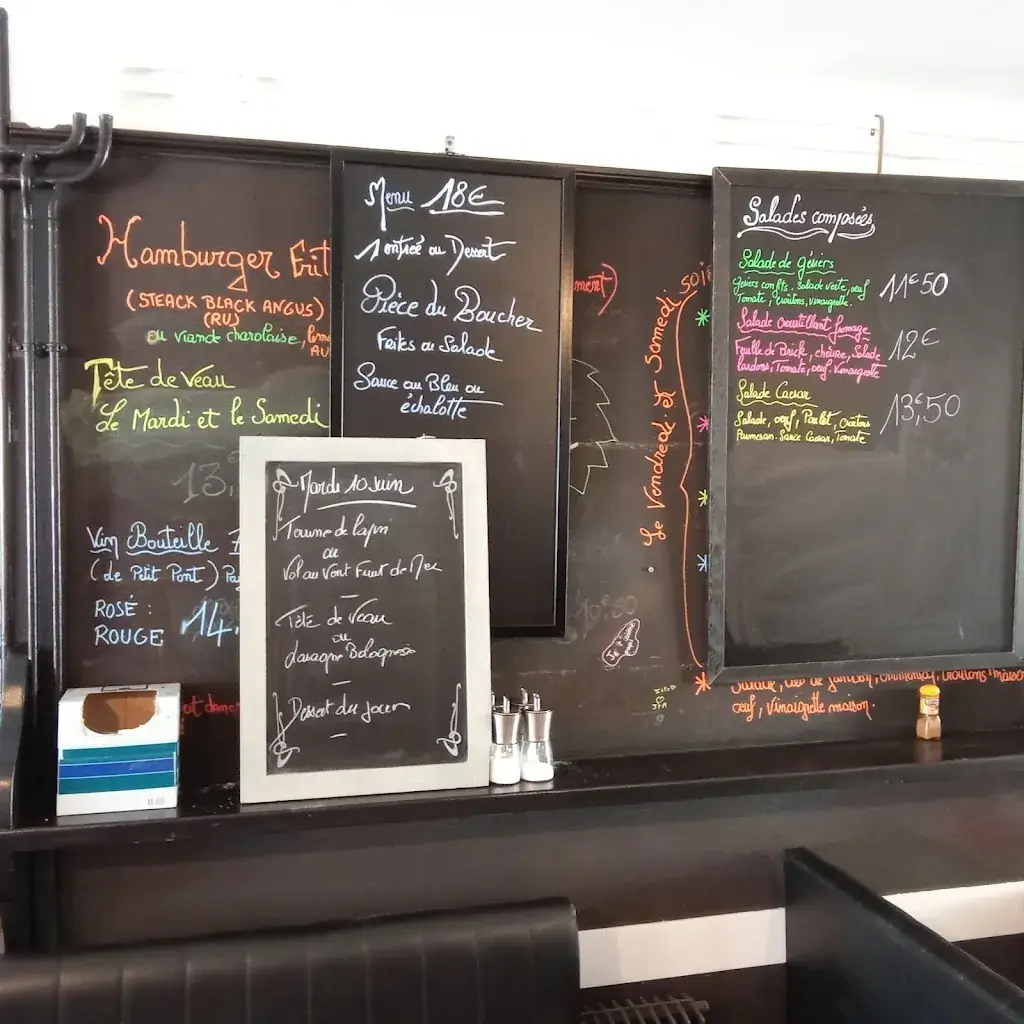 Hamburger Frit
(STEACK BLACK ANGUS)
(RU)
ou viande charolaise,
AU
Tête de veau
Le Mardi et le Samedi
13,
Vin Bouteille
(de Petit Pont)
ROSÉ :
ROUGE 14.
Menu 18€
1 entrée ou Dessert
Pièce du Boucher
Faites ou Salade
Sauce au Bleu ou
échalotte
Mardi 10 Juin
Terrine de lapin
ou
Vol au Vent Fruit de Mer
Tête de Veau
ou
Lasagne Bolognese
Dessert du jour
ment)
Le Vendredi et Samedi
soir
10,80
Salades composées
Salade de Gésiers
Gésiers confits, salade verte, oeuf
Tomate, croûtons, vinaigrette.
11€50
Salade Croustillant fromage
Feuille de Brick, chèvre, Salade
lardons, Tomate, oeuf. Vinaigrette
12€
Salade Caesar
Salade, oeuf, Poulet, croûtons
Parmesan. Sauce Caesar, Tomate
13€,50
Salade, dés de jambon, emmental, croûtons maison
oeuf, vinaigrette maison.